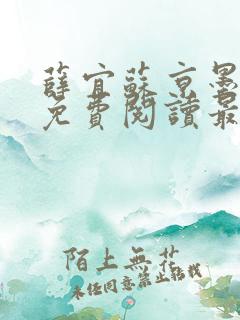 薛宜蘇京墨
免費閱讀最
陌上無花
未經同意禁止轉載